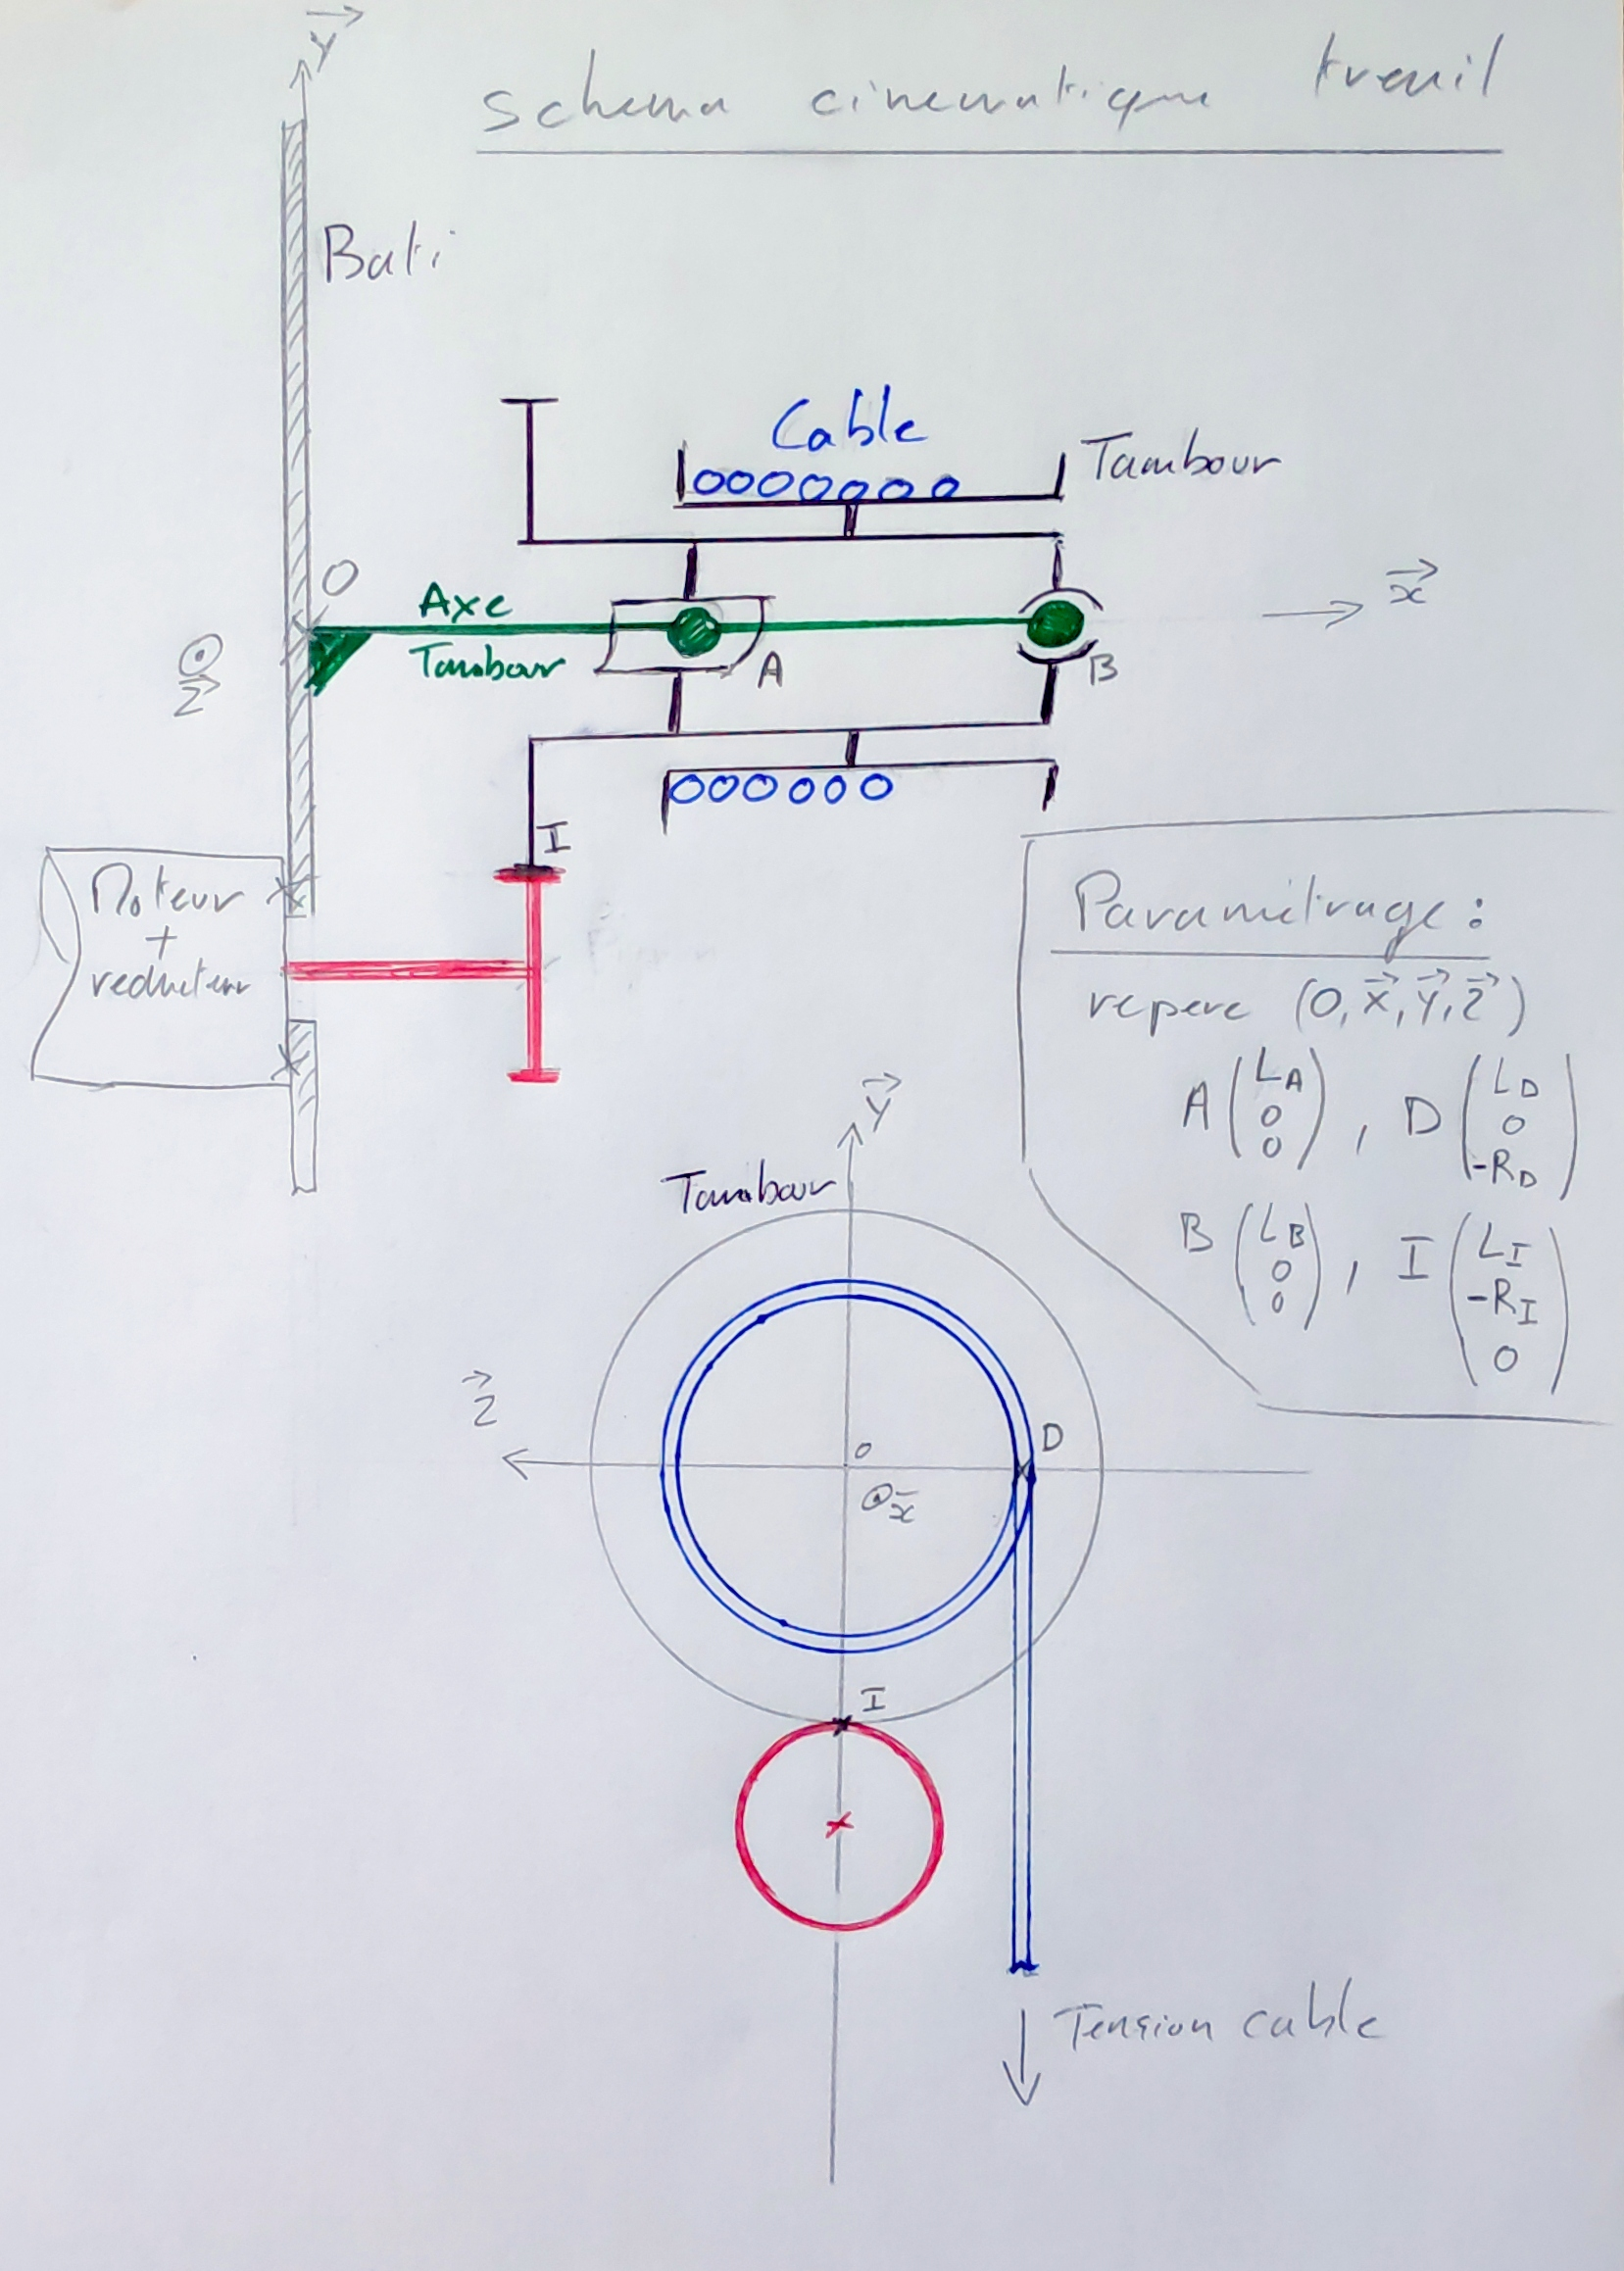 Y
schema cinematique treuil
Bati
Cable
Tambour
O
Axe
Tambour
x
z
A
B
I
Moteur
+
reducteur
Paramétrage :
repere (O, x, y, z)
A (L_A 0 0), D (L_D 0 -R_D)
B (L_B 0 0), I (L_I -R_I 0)
Y
Tambour
z
o
D
x
I
Tension cable